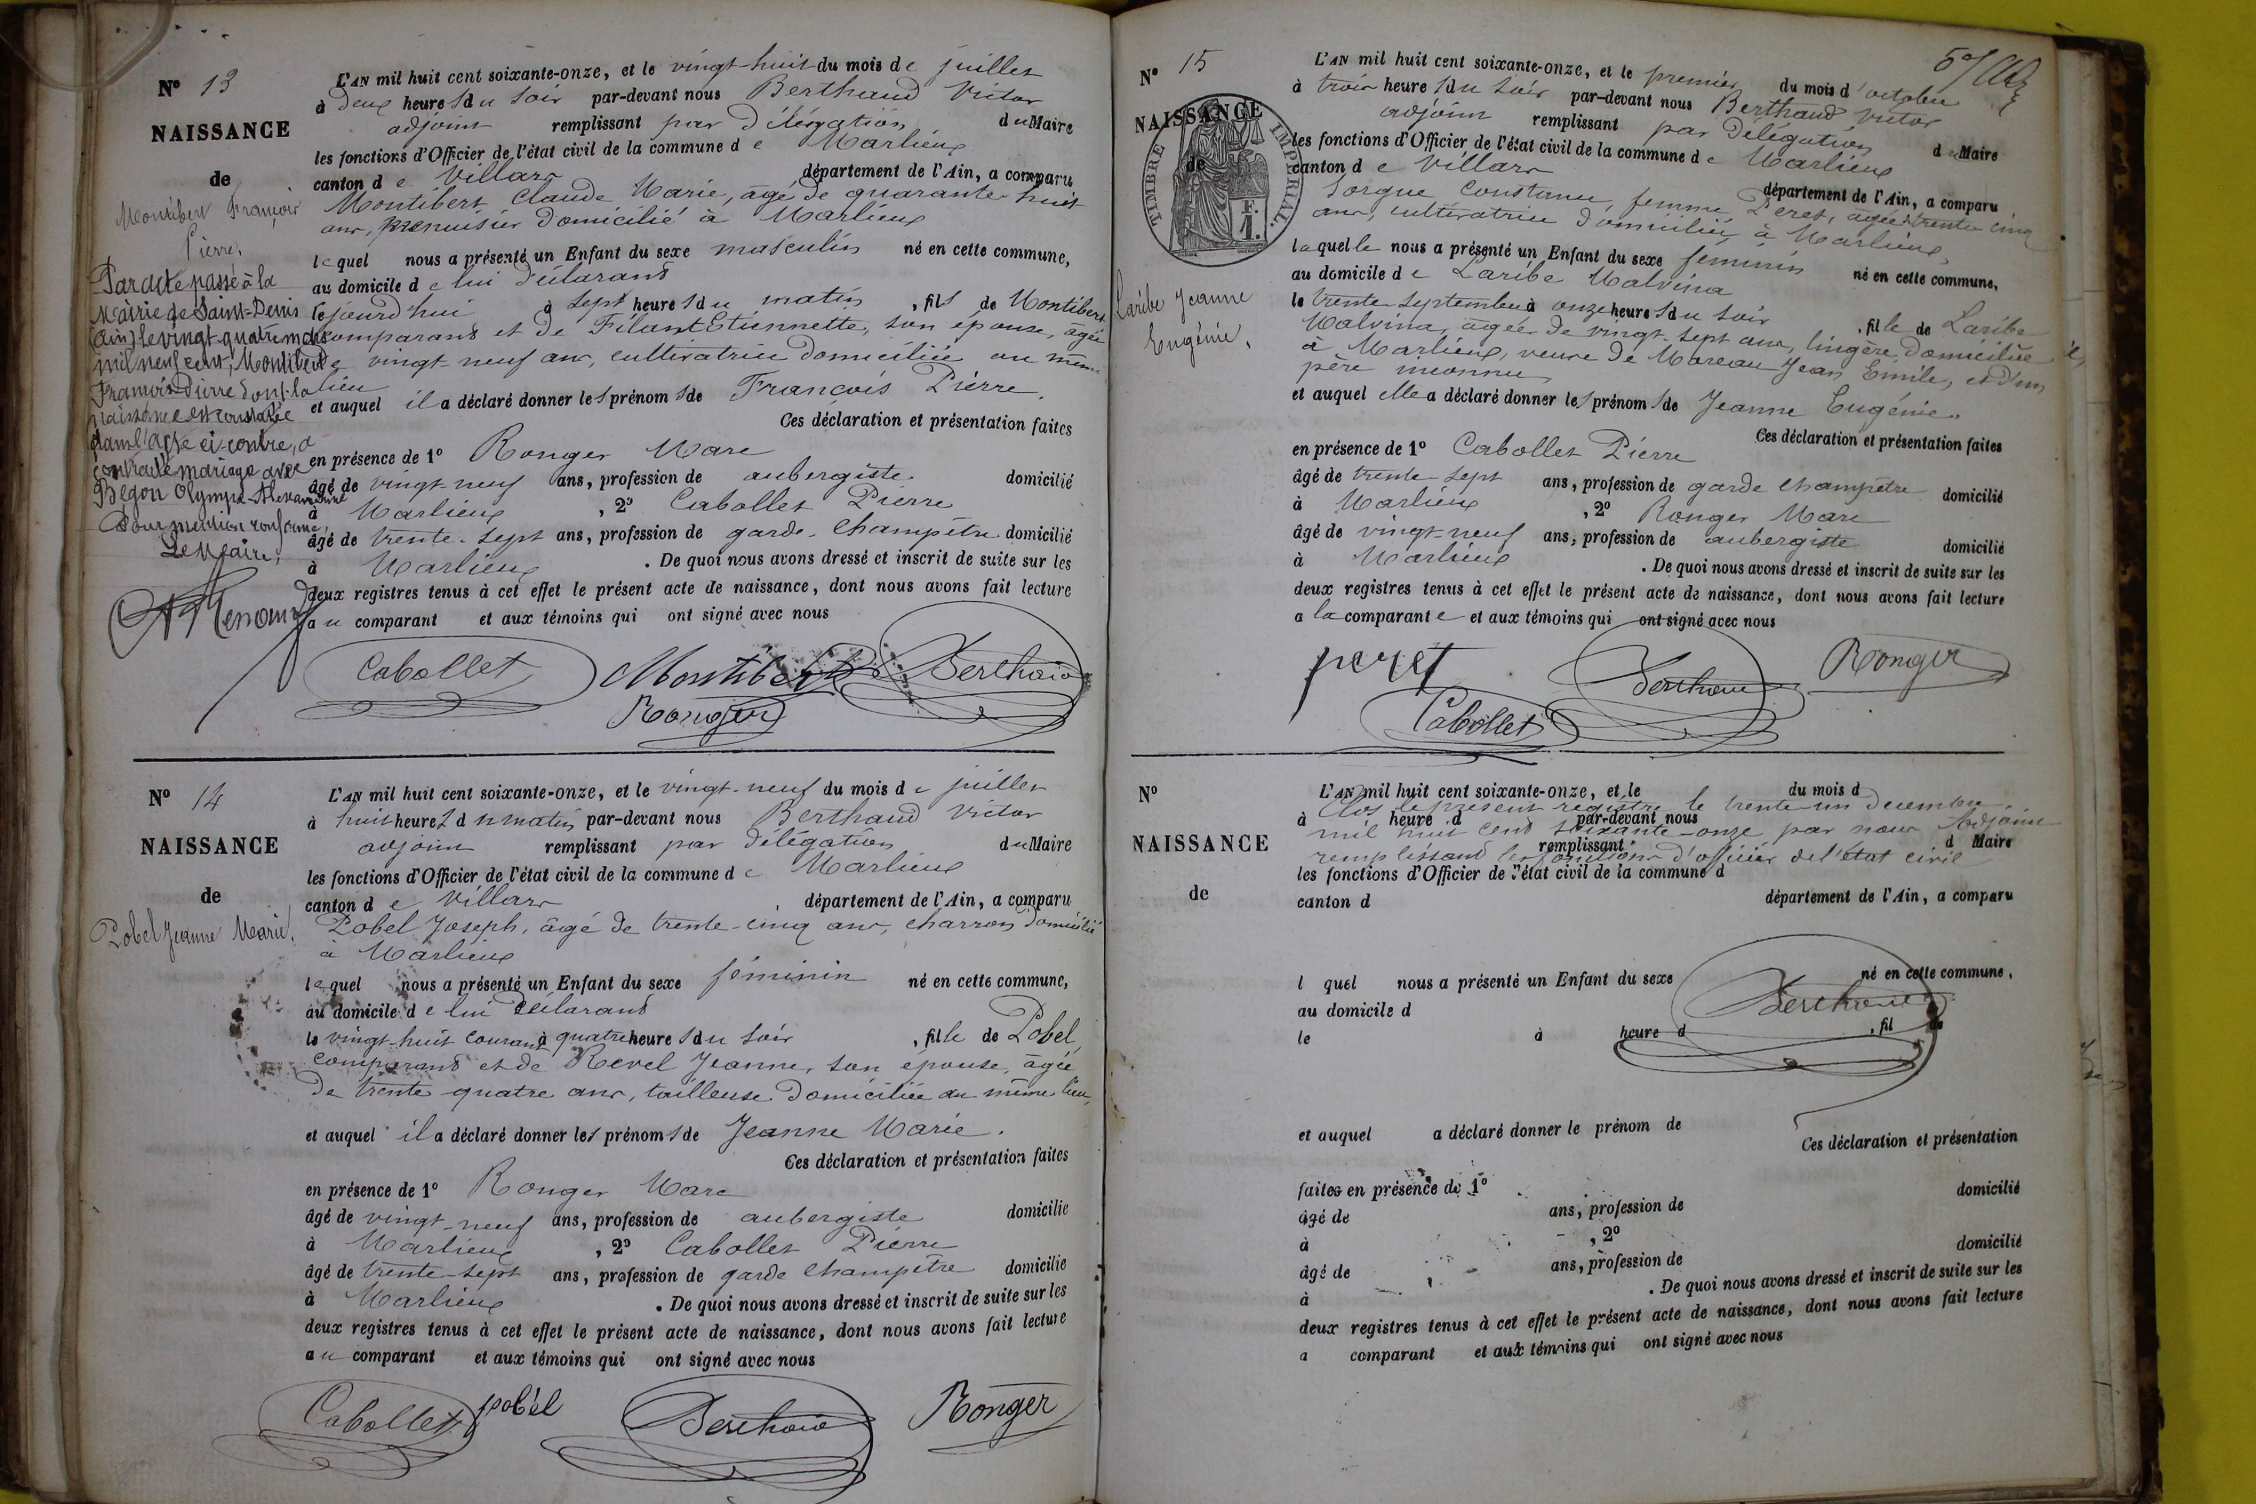 N° 13
NAISSANCE
de
Montibert François
Pierre.
Par acte passé à la
Mairie de Saint-Denis
(Ain) le vingt-quatre mars
mil neuf cent, Montibert
François Pierre dont la
naissance est constatée
dans l'acte ci-contre, a
contracté mariage avec
Bégon Olympe-Alexandrine
Pour mention conforme,
Le Maire,
L'AN mil huit cent soixante-onze, et le vingt-huit du mois de juillet
à deux heures du soir par-devant nous Berthaud Victor
adjoint remplissant par délégation du Maire
les fonctions d'Officier de l'état civil de la commune de Marlieux
canton de Villars département de l'Ain, a comparu
Montibert Claude Marie, âgé de quarante huit
ans, menuisier domicilié à Marlieux
lequel nous a présenté un Enfant du sexe masculin né en cette commune,
au domicile de lui déclarant
le jourd'hui à sept heures du matin, fils de Montibert
comparant et de Filant Etiennette, son épouse, âgée
de vingt-neuf ans, cultivatrice domiciliée au même
lieu
et auquel il a déclaré donner les prénoms de François Pierre.
Ces déclaration et présentation faites
en présence de 1° Ronger Marc
âgé de vingt-neuf ans, profession de aubergiste domicilié
à Marlieux, 2° Cabollet Pierre
âgé de trente-sept ans, profession de garde-champêtre domicilié
à Marlieux. De quoi nous avons dressé et inscrit de suite sur les
deux registres tenus à cet effet le présent acte de naissance, dont nous avons fait lecture
au comparant et aux témoins qui ont signé avec nous
Cabollet Montibert Berthaud
Ronger
N° 14
NAISSANCE
de
Pobel Jeanne Marie.
L'AN mil huit cent soixante-onze, et le vingt-neuf du mois de juillet
à huit heures du matin par-devant nous Berthaud Victor
adjoint remplissant par délégation du Maire
les fonctions d'Officier de l'état civil de la commune de Marlieux
canton de Villars, département de l'Ain, a comparu
Pobel Joseph, âgé de trente-cinq ans, charron domicilié
à Marlieux
lequel nous a présenté un Enfant du sexe féminin né en cette commune,
au domicile de lui déclarant
le vingt-huit courant à quatre heures du soir, fille de Pobel,
comparant et de Revel Jeanne, son épouse, âgée
de trente-quatre ans, tailleuse domiciliée au même lieu,
et auquel il a déclaré donner les prénoms de Jeanne Marie.
Ces déclaration et présentation faites
en présence de 1° Ronger Marc
âgé de vingt-neuf ans, profession de aubergiste domicilié
à Marlieux, 2° Cabollet Pierre
âgé de trente-sept ans, profession de garde champêtre domicilié
à Marlieux. De quoi nous avons dressé et inscrit de suite sur les
deux registres tenus à cet effet le présent acte de naissance, dont nous avons fait lecture
au comparant et aux témoins qui ont signé avec nous
Cabollet pobel Berthaud Ronger
N° 15
NAISSANCE
de
TIMBRE IMPERIAL.
1 F.
Laribe Jeanne
Eugénie.
L'AN mil huit cent soixante-onze, et le premier du mois d'octobre
à trois heures du soir par-devant nous Berthaud Victor
adjoint remplissant par délégation du Maire
les fonctions d'Officier de l'état civil de la commune de Marlieux
canton de Villars département de l'Ain, a comparu
Lorgue Constance, femme Peret, âgée de trente cinq
ans, cultivatrice domiciliée à Marlieux,
laquelle nous a présenté un Enfant du sexe féminin né en cette commune,
au domicile de Laribe Malvina
le trente septembre à onze heures du soir, fille de Laribe
Malvina, âgée de vingt-sept ans, lingère, domiciliée
à Marlieux, veuve de Moreau Jean Emile, et d'un
père inconnu
et auquel elle a déclaré donner les prénoms de Jeanne Eugénie.
Ces déclaration et présentation faites
en présence de 1° Cabollet Pierre
âgé de trente sept ans, profession de garde champêtre domicilié
à Marlieux, 2° Ronger Marc
âgé de vingt-neuf ans, profession de aubergiste domicilié
à Marlieux. De quoi nous avons dressé et inscrit de suite sur les
deux registres tenus à cet effet le présent acte de naissance, dont nous avons fait lecture
a la comparante et aux témoins qui ont signé avec nous
peret Berthaud Ronger
Cabollet
N°
NAISSANCE
de
L'AN mil huit cent soixante-onze, et le du mois d
Clos le présent registre le trente-un décembre
à heure d par-devant nous
mil huit cent soixante-onze par nous Adjoint
remplissant d Maire
remplissant les fonctions d'officier de l'état civil
les fonctions d'Officier de l'état civil de la commune d
canton d département de l'Ain, a comparu
l quel nous a présenté un Enfant du sexe né en cette commune,
Berthaud
au domicile d
le à heure d, fil de
et auquel a déclaré donner le prénom de
Ces déclaration et présentation
faites en présence de 1° domicilié
âgé de ans, profession de
à , 2° domicilié
âgé de ans, profession de
à . De quoi nous avons dressé et inscrit de suite sur les
deux registres tenus à cet effet le présent acte de naissance, dont nous avons fait lecture
a comparant et aux témoins qui ont signé avec nous